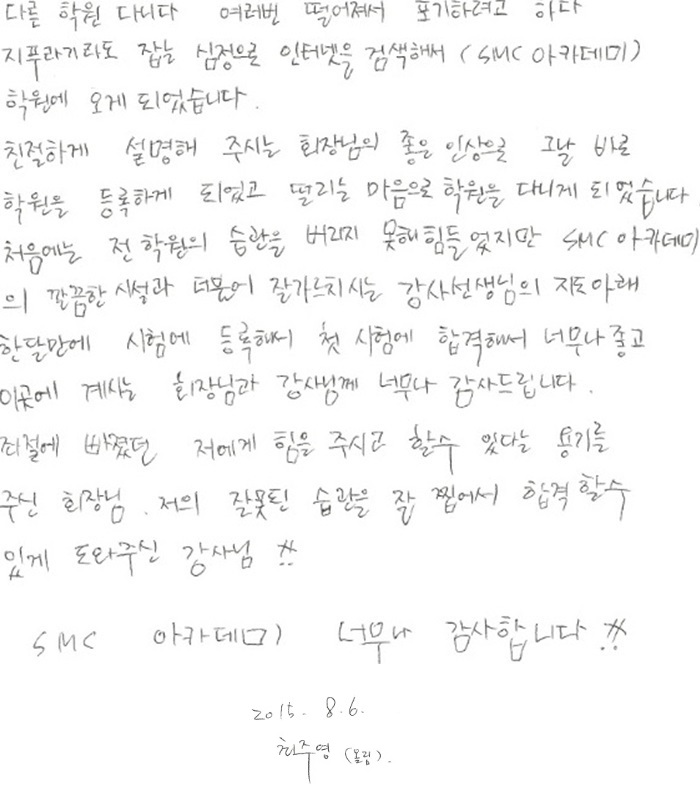 다른 학원 다니다 여러번 떨어져서 포기하려고 하다
지푸라기라도 잡는 심정으로 인터넷을 검색해서 (SMC 아카데미)
학원에 오게 되었습니다.
친절하게 설명해 주시는 회장님의 좋은 인상으로 그날 바로
학원을 등록하게 되였고 떨리는 마음으로 학원을 다니게 되었습니다
처음에는 전 학원의 습관을 버리지 못해 힘들었지만 SMC 아카데미
의 깔끔한 시설과 더불어 잘가르치시는 강사선생님의 지도아래
한달만에 시험에 등록해서 첫 시험에 합격해서 너무나 좋고
이곳에 계시는 회장님과 강사님께 너무나 감사드립니다.
좌절에 빠졌던 저에게 힘을 주시고 할수 있다는 용기를
주신 회장님. 저의 잘못된 습관을 잘 찝어서 합격할수
있게 도와주신 강사님 !!
SMC 아카데미 너무나 감사합니다 !!
2015. 8. 6.
최주영